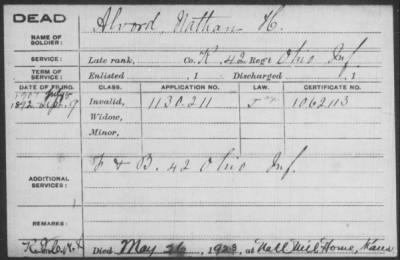 DEAD
NAME OF
SOLDIER:
Alvord, Nathan H.
SERVICE:
Late rank, Co. K 42 Reg't Ohio Inf.
TERM OF
SERVICE:
Enlisted , 1 Discharged , 1
DATE OF FILING. CLASS. APPLICATION NO. LAW. CERTIFICATE NO.
1892 Sept. 9 Invalid, 1130.211 1062113
Widow,
Minor,
ADDITIONAL
SERVICES:
F & B. 42 Ohio Inf.
REMARKS:
Died May 26, 1923, at Natl Mil Home, Kans